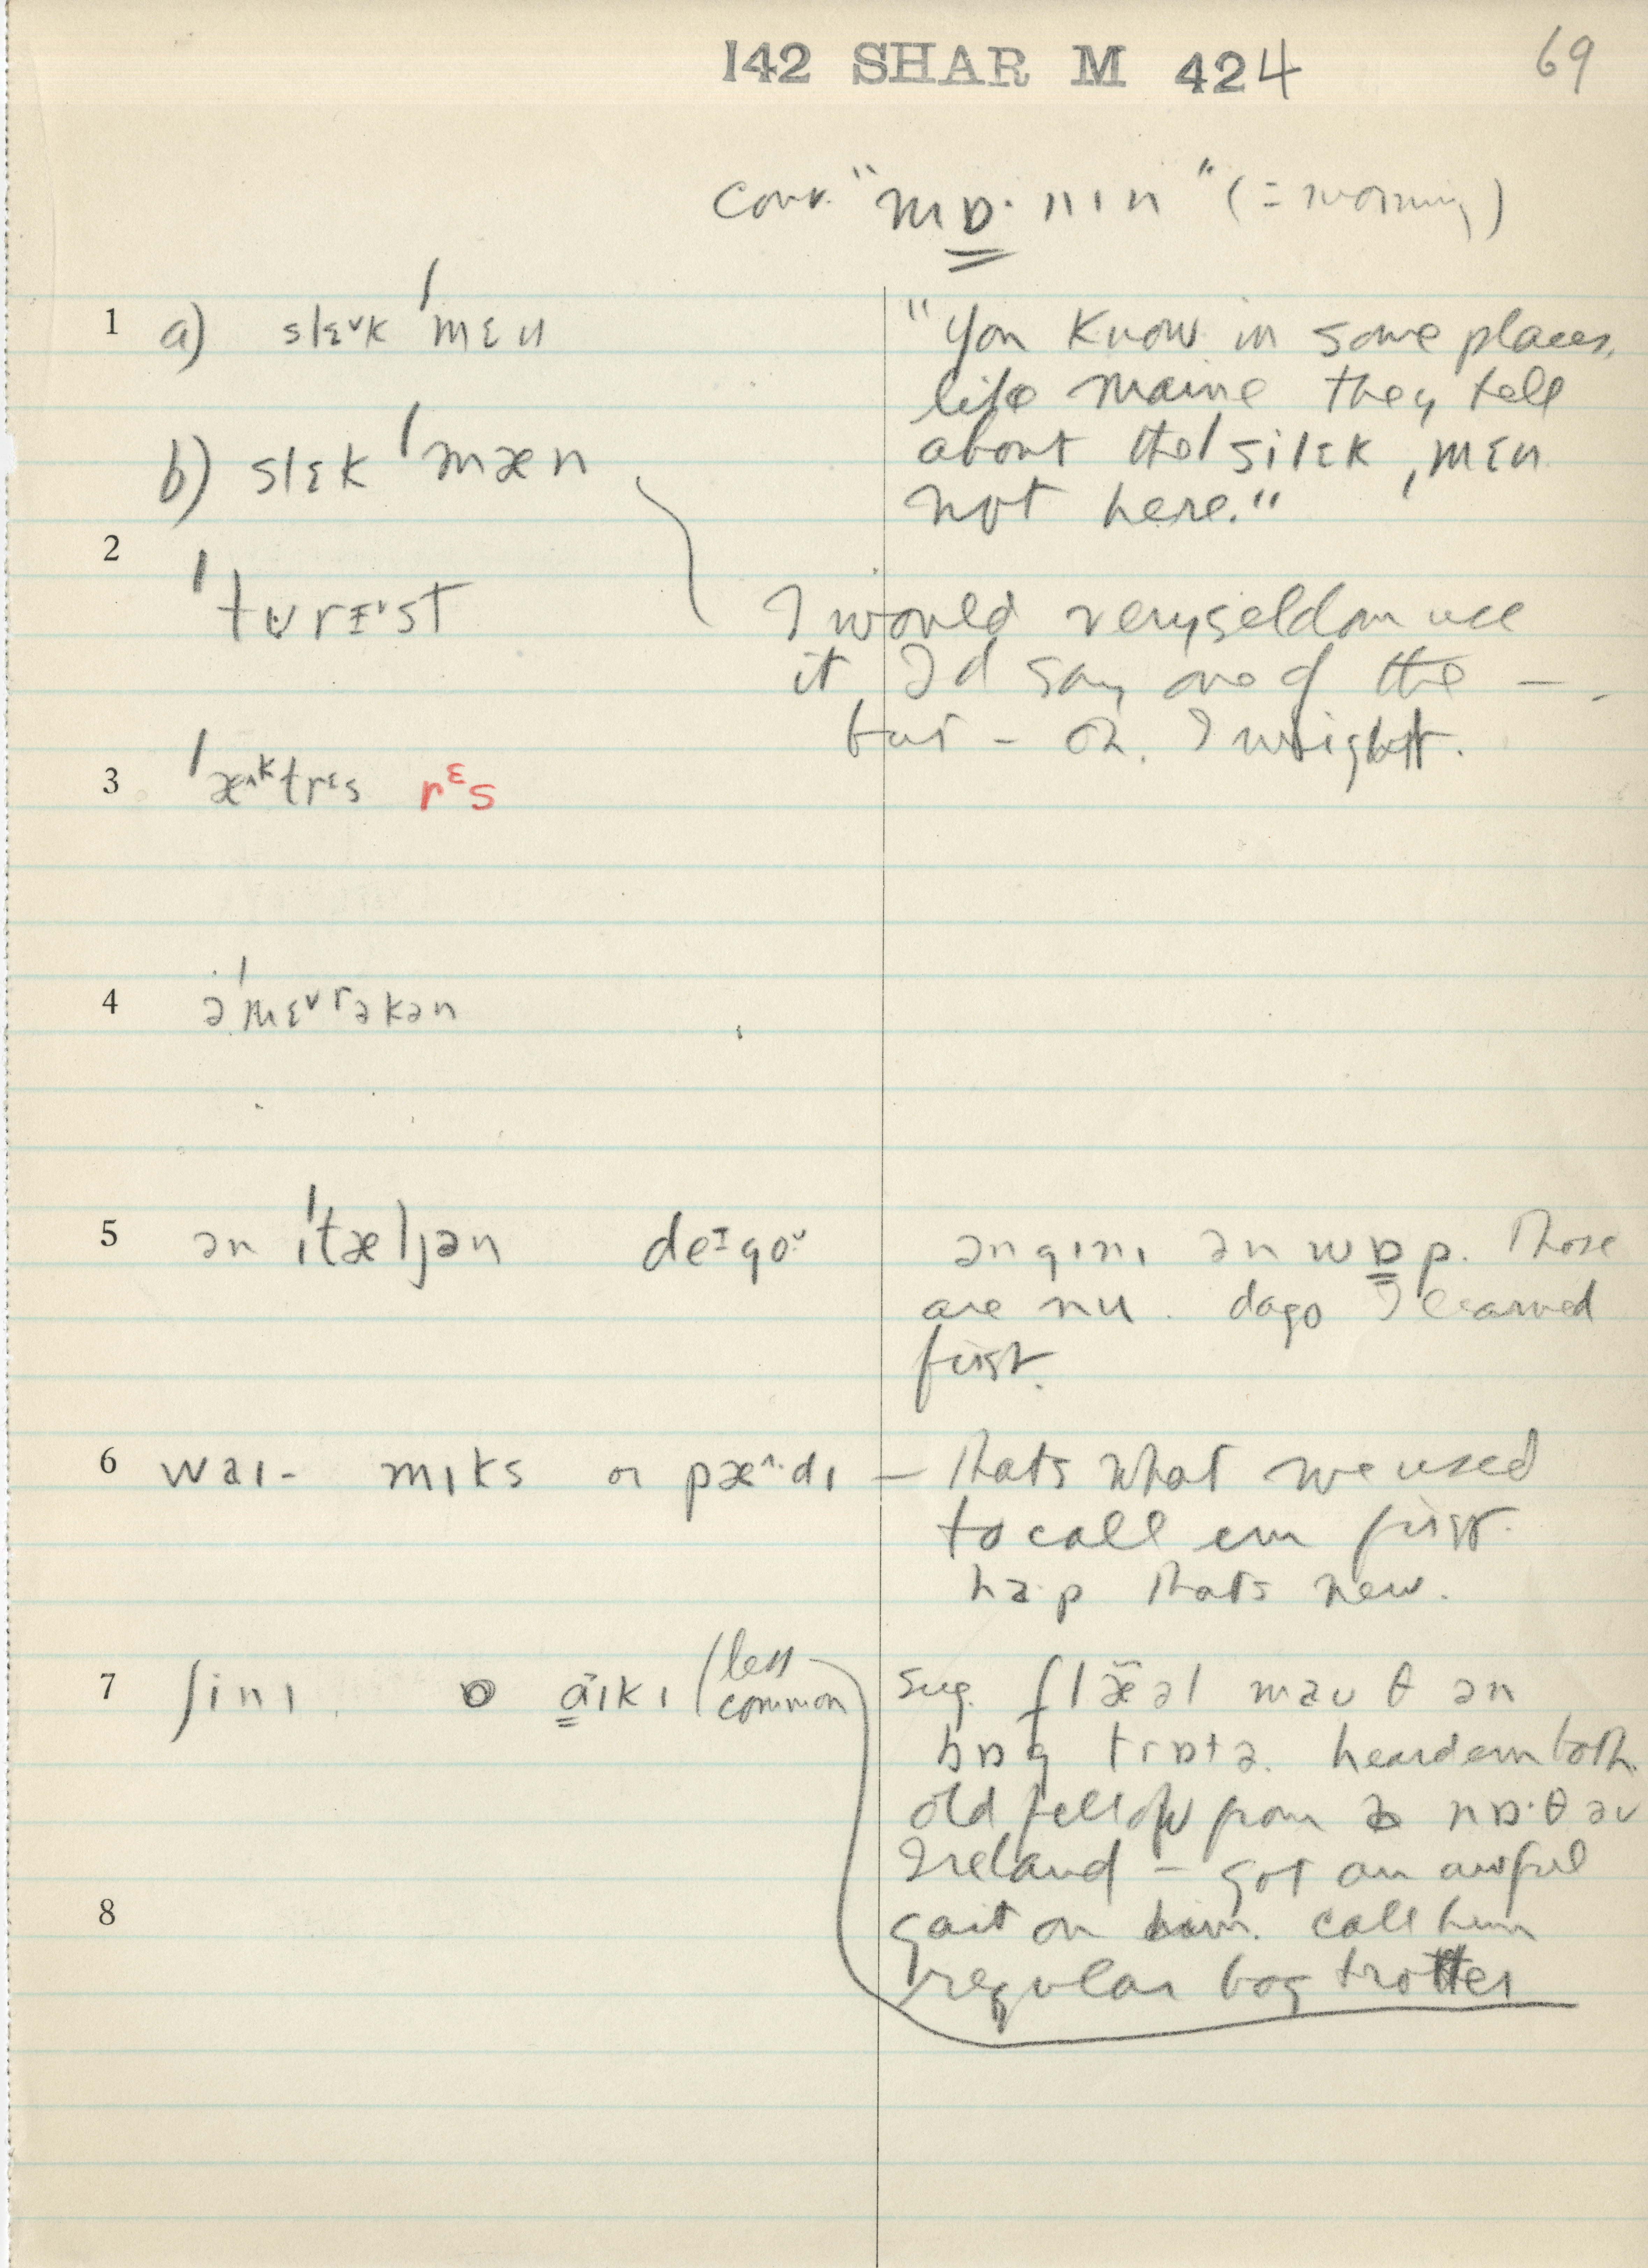 142 SHAR M 424 69
conv. "mɒ·nın" (= morning)
1 a) slɛ˅k ˈmɛn
"you know in some places,
like Maine they tell
about the ˈsilɛk ˌmɛn
not here."
b) slɛk ˈmæn
2 ˈtʊrɪst
I would very seldom use
it, I'd say one of the —
but – oh, I might.
3 ˈæ^ktrɛs rɛs
4 əˈmɛ˅rəkən
5 ən ıˈtæljən deɪgo˅
ən gını ən wɒp. Those
are nu. dago I learned
first.
6 waı- mıks or pæ^·dı — thats what we used
to call em first.
haːp thats new.
7 ʃini aıkı (less
common
sug. flæəl mauθ ən
bɒg trɒtə. heard em both.
old fellow from nɒ·θ əv
Ireland — got an awful
8 gait on him. call him
regular bog trotter